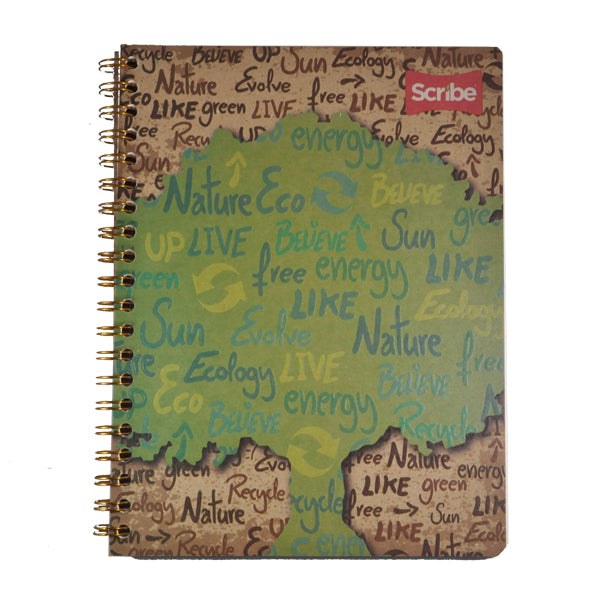 Recycle BELIEVE UP Sun Ecology Nature
Scribe
Nature Evolve
Eco LIKE green LIVE free LIKE
Sun Recycle
energy
Nature Eco BELIEVE
UP LIVE BELIEVE Sun green
green free energy LIKE
LIKE Ecology
Sun Evolve Nature
Ecology LIVE free
Eco BELIEVE energy BELIEVE
Recycle
green free Nature
Recycle LIKE green
Ecology Nature free
LIKE Sun
green Recycle Eco